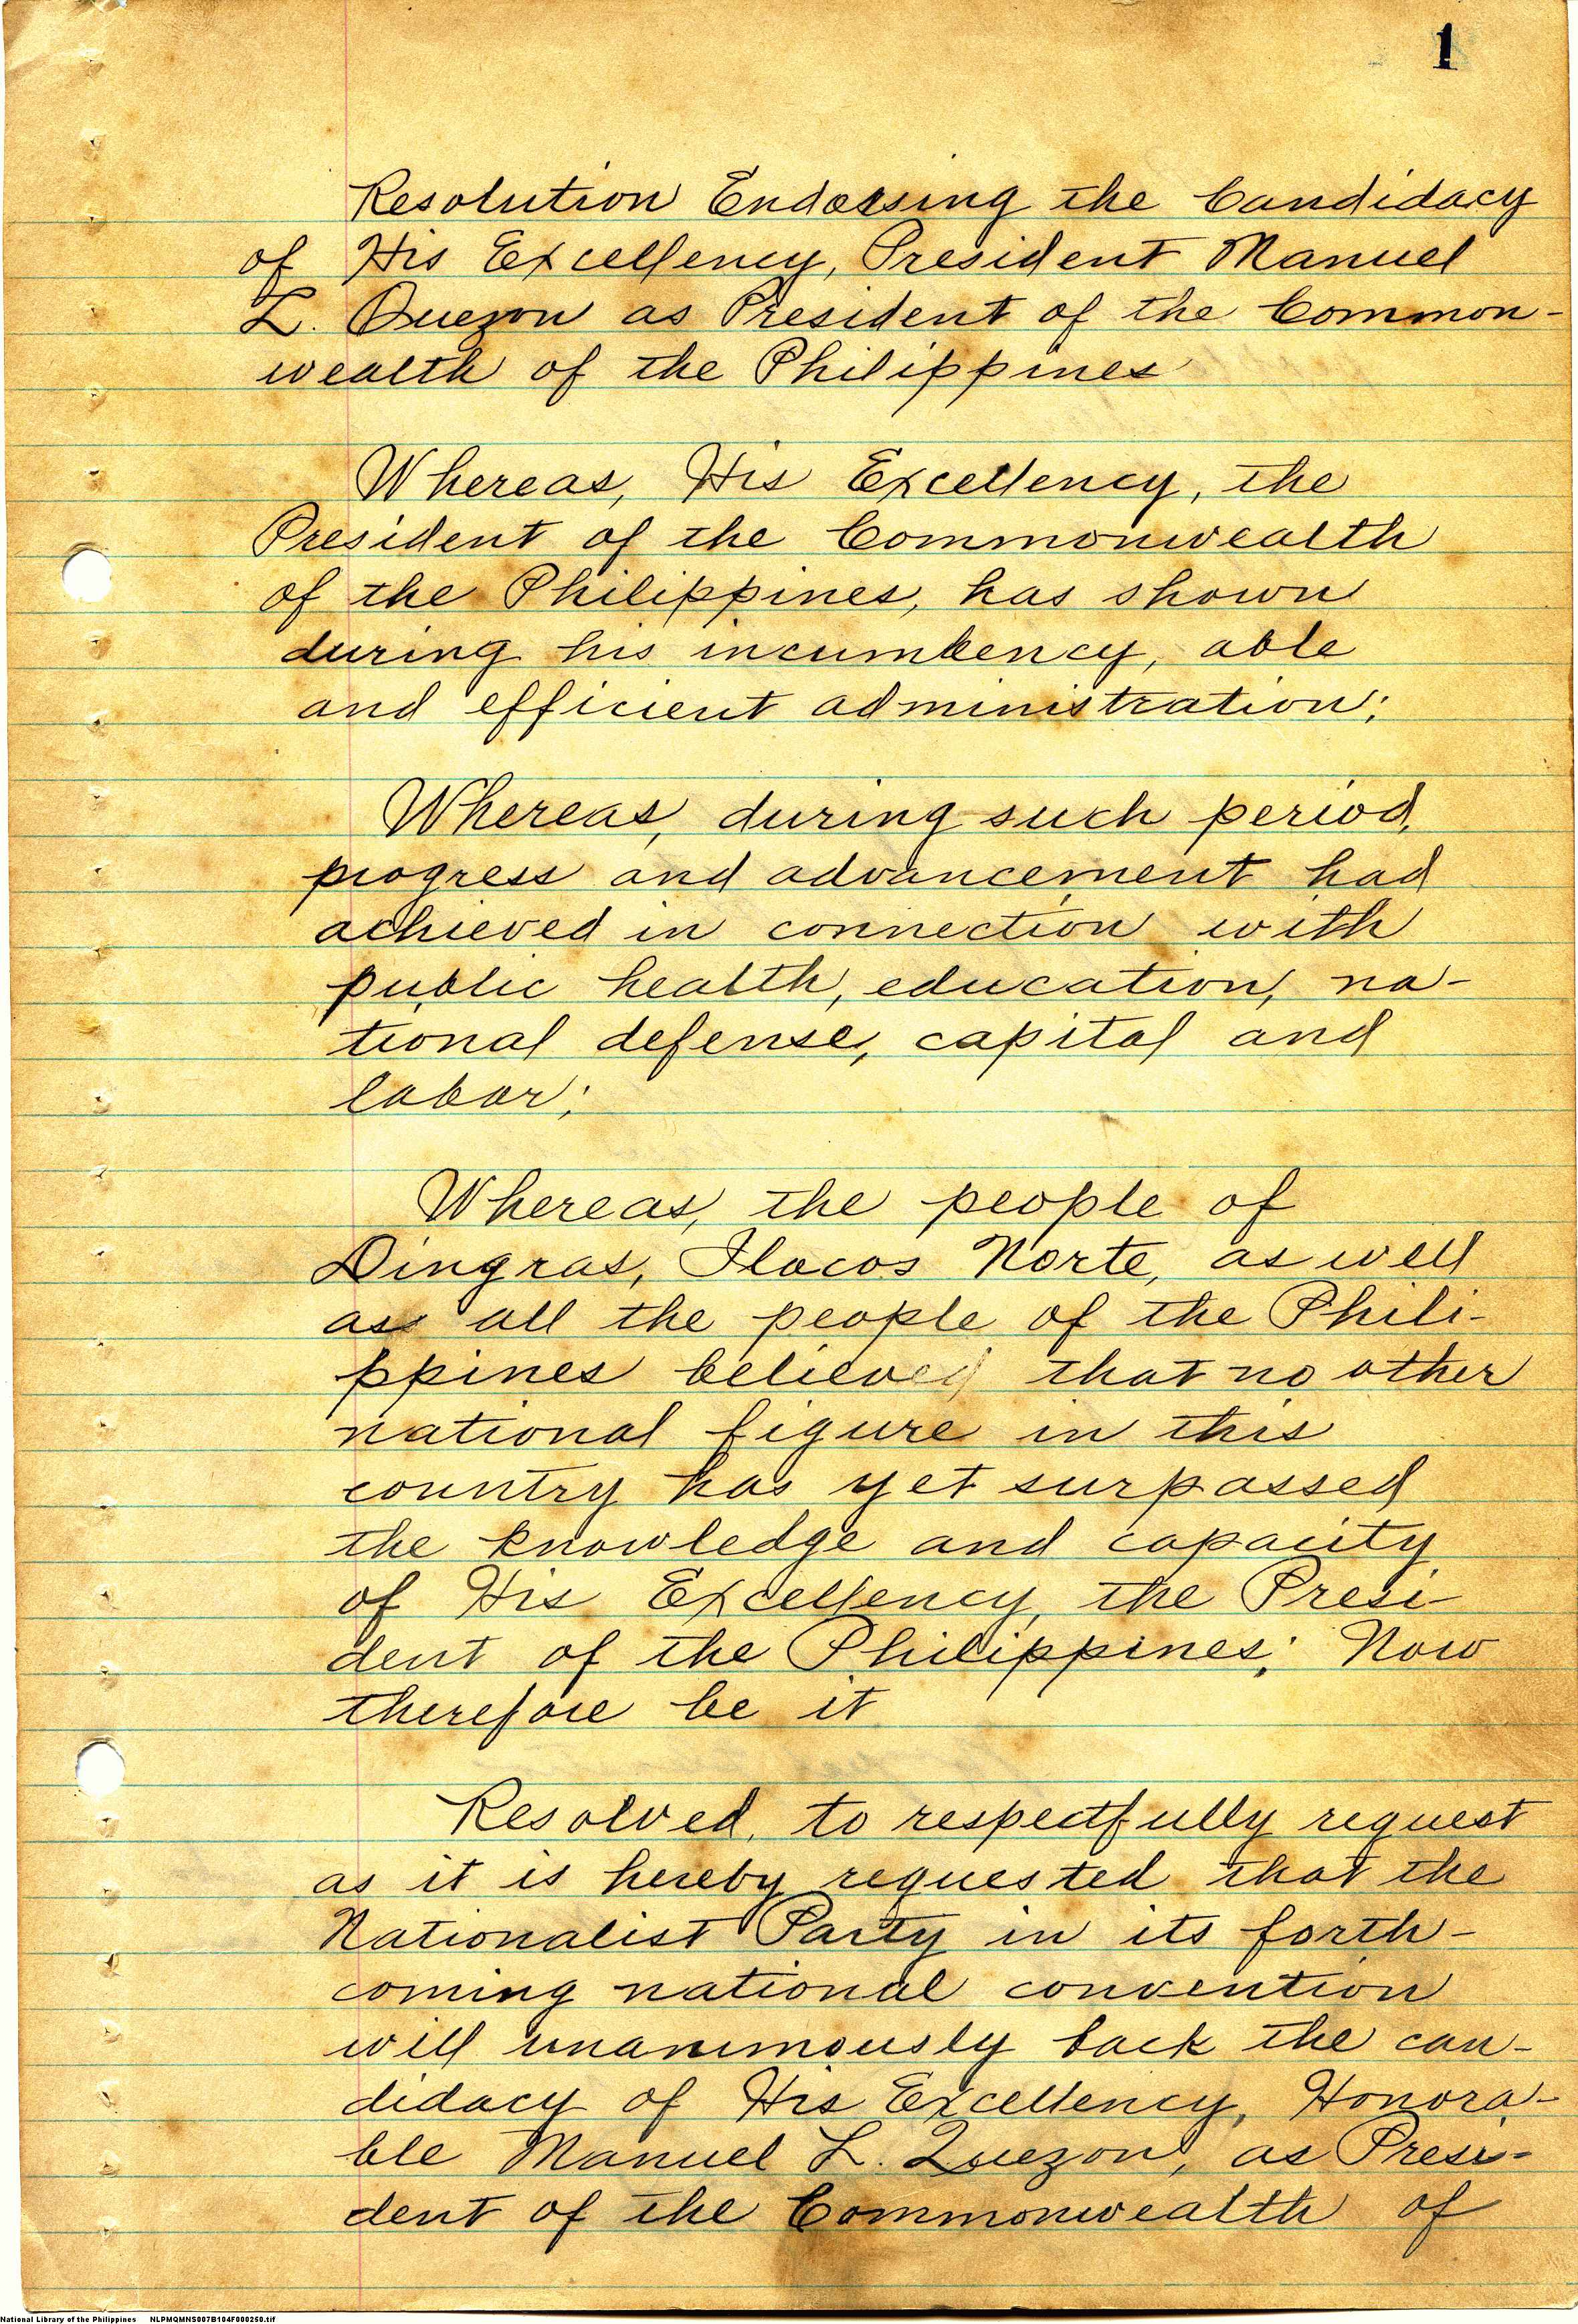 1
Resolution Endorsing the Candidacy
of His Excellency, President Manuel
L. Quezon as President of the Common-
wealth of the Philippines
Whereas, His Excellency, the
President of the Commonwealth
of the Philippines, has shown
during his incumbency, able
and efficient administration;
Whereas, during such period,
progress and advancement had
achieved in connection with
public health, education, na-
tional defense, capital and
labor;
Whereas, the people of
Dingras, Ilocos Norte, as well
as all the people of the Phili-
ppines believed that no other
national figure in this
country has yet surpassed
the knowledge and capacity
of His Excellency, the Presi-
dent of the Philippines; Now
therefore be it
Resolved, to respectfully request
as it is hereby requested that the
Nationalist Party in its forth-
coming national convention
will unanimously back the can-
didacy of His Excellency, Honora-
ble Manuel L. Quezon, as Presi-
dent of the Commonwealth of
National Library of the Philippines NLPMQMNS007B104F000250.tif